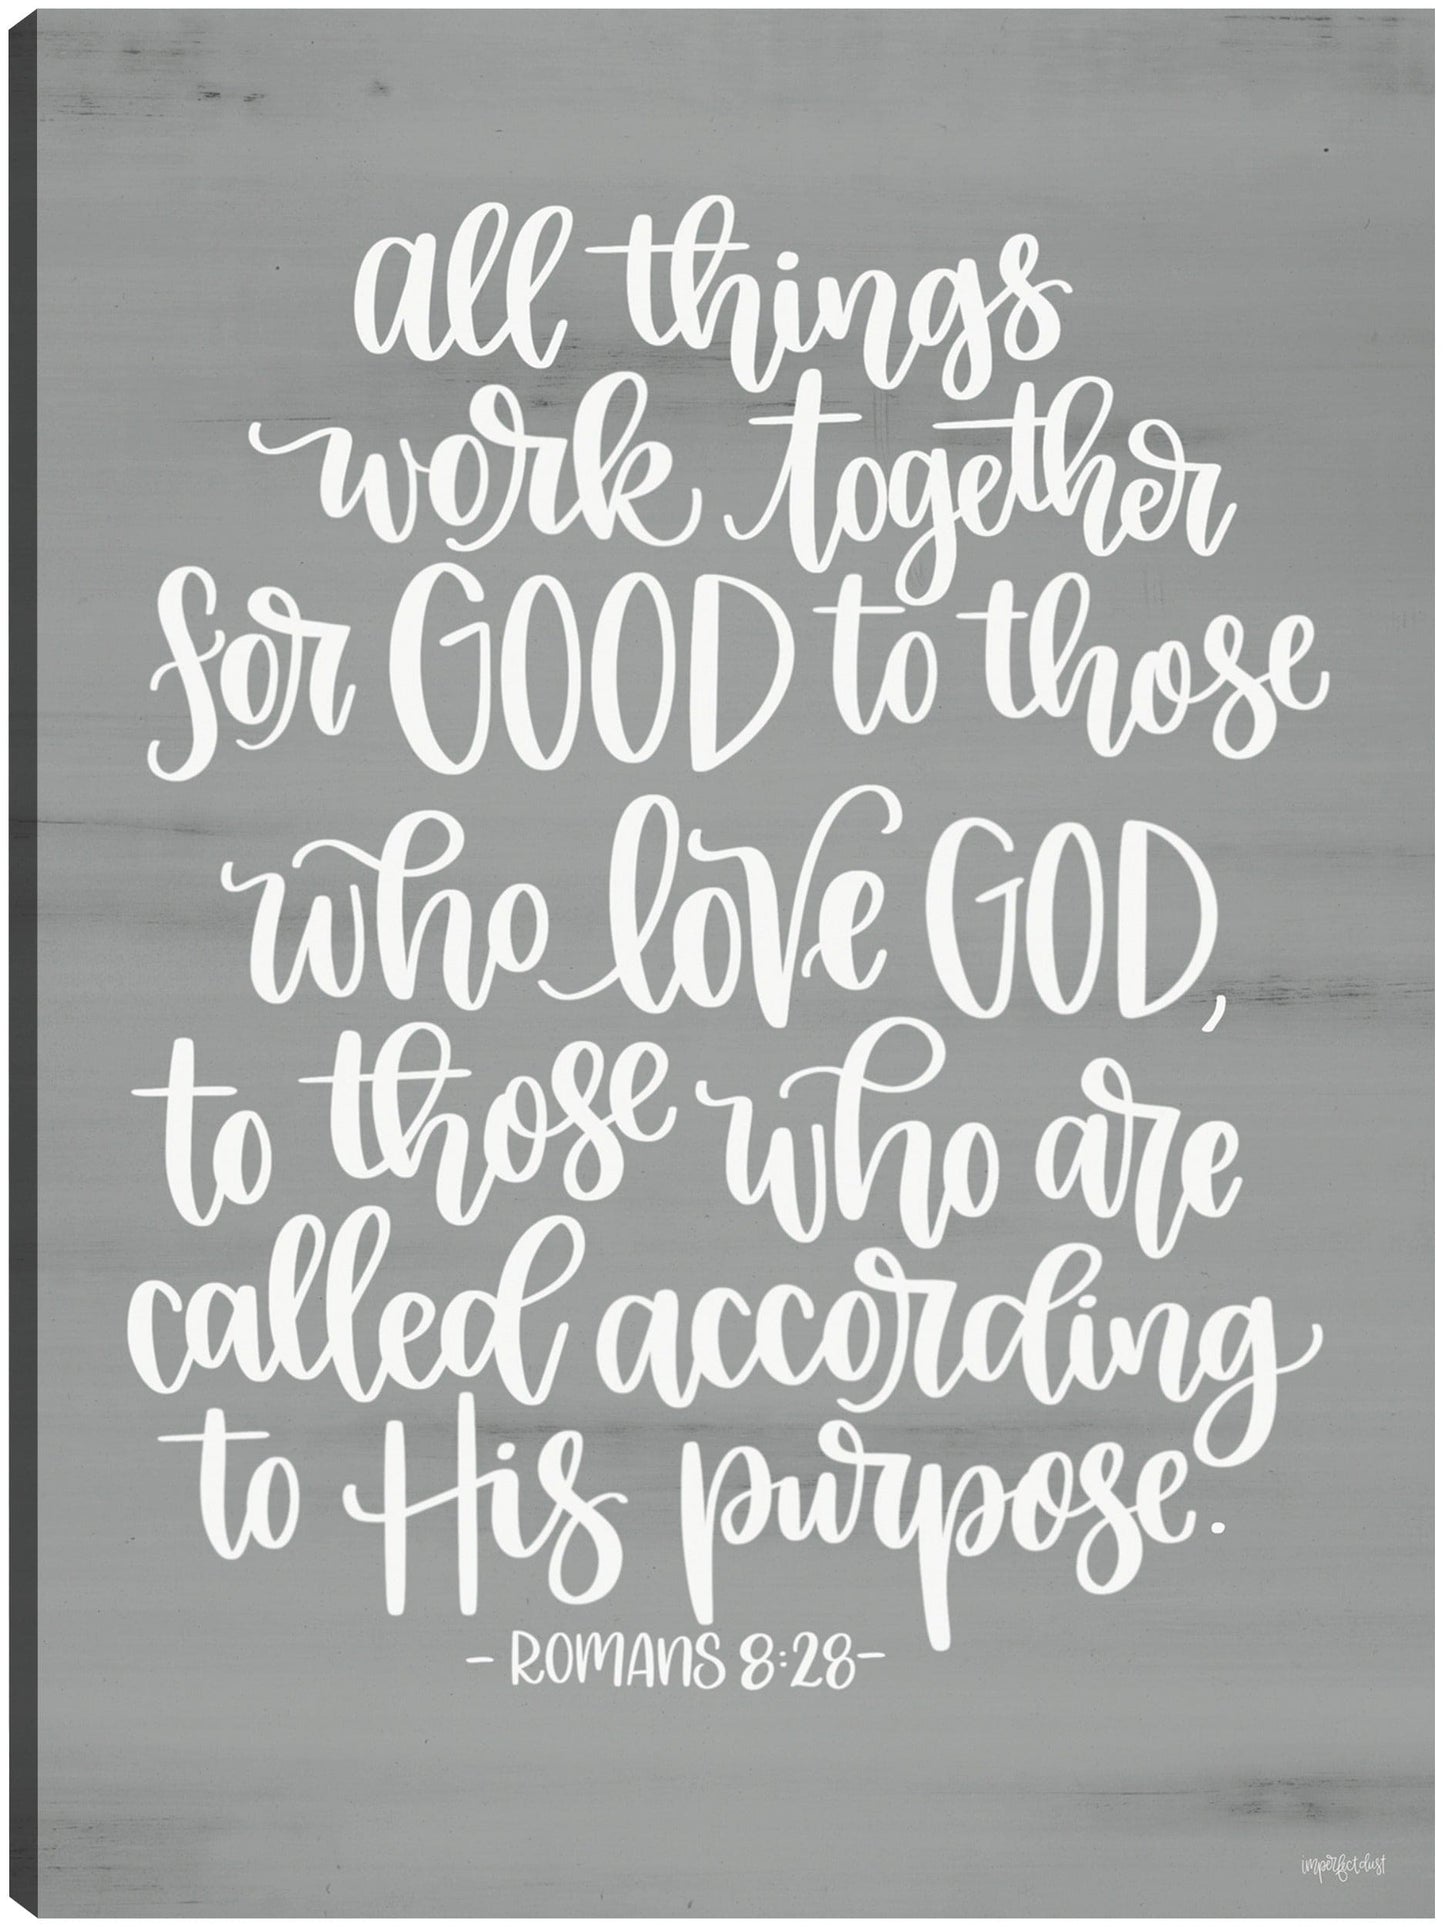 all things
work together
for GOOD to those
who love GOD,
to those who are
called according
to His purpose.
- ROMANS 8:28-
imperfectdust